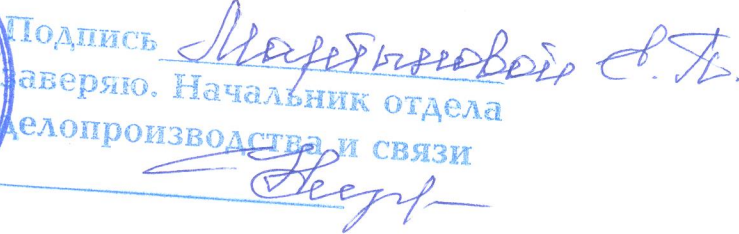 Подпись Мартыновой Е. П.
заверяю. Начальник отдела
делопроизводства и связи